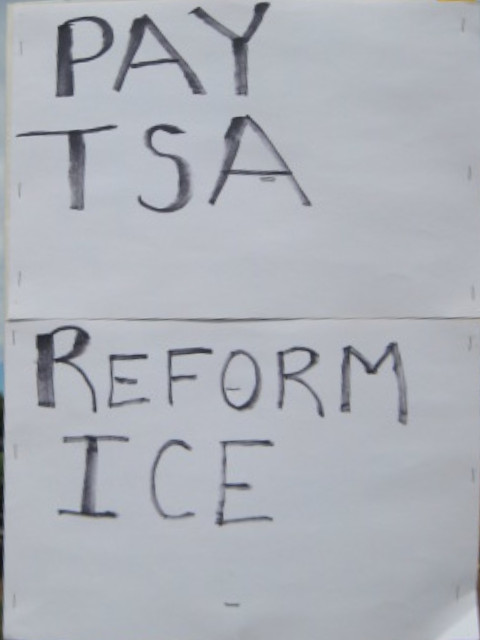 PAY
TSA
REFORM
ICE